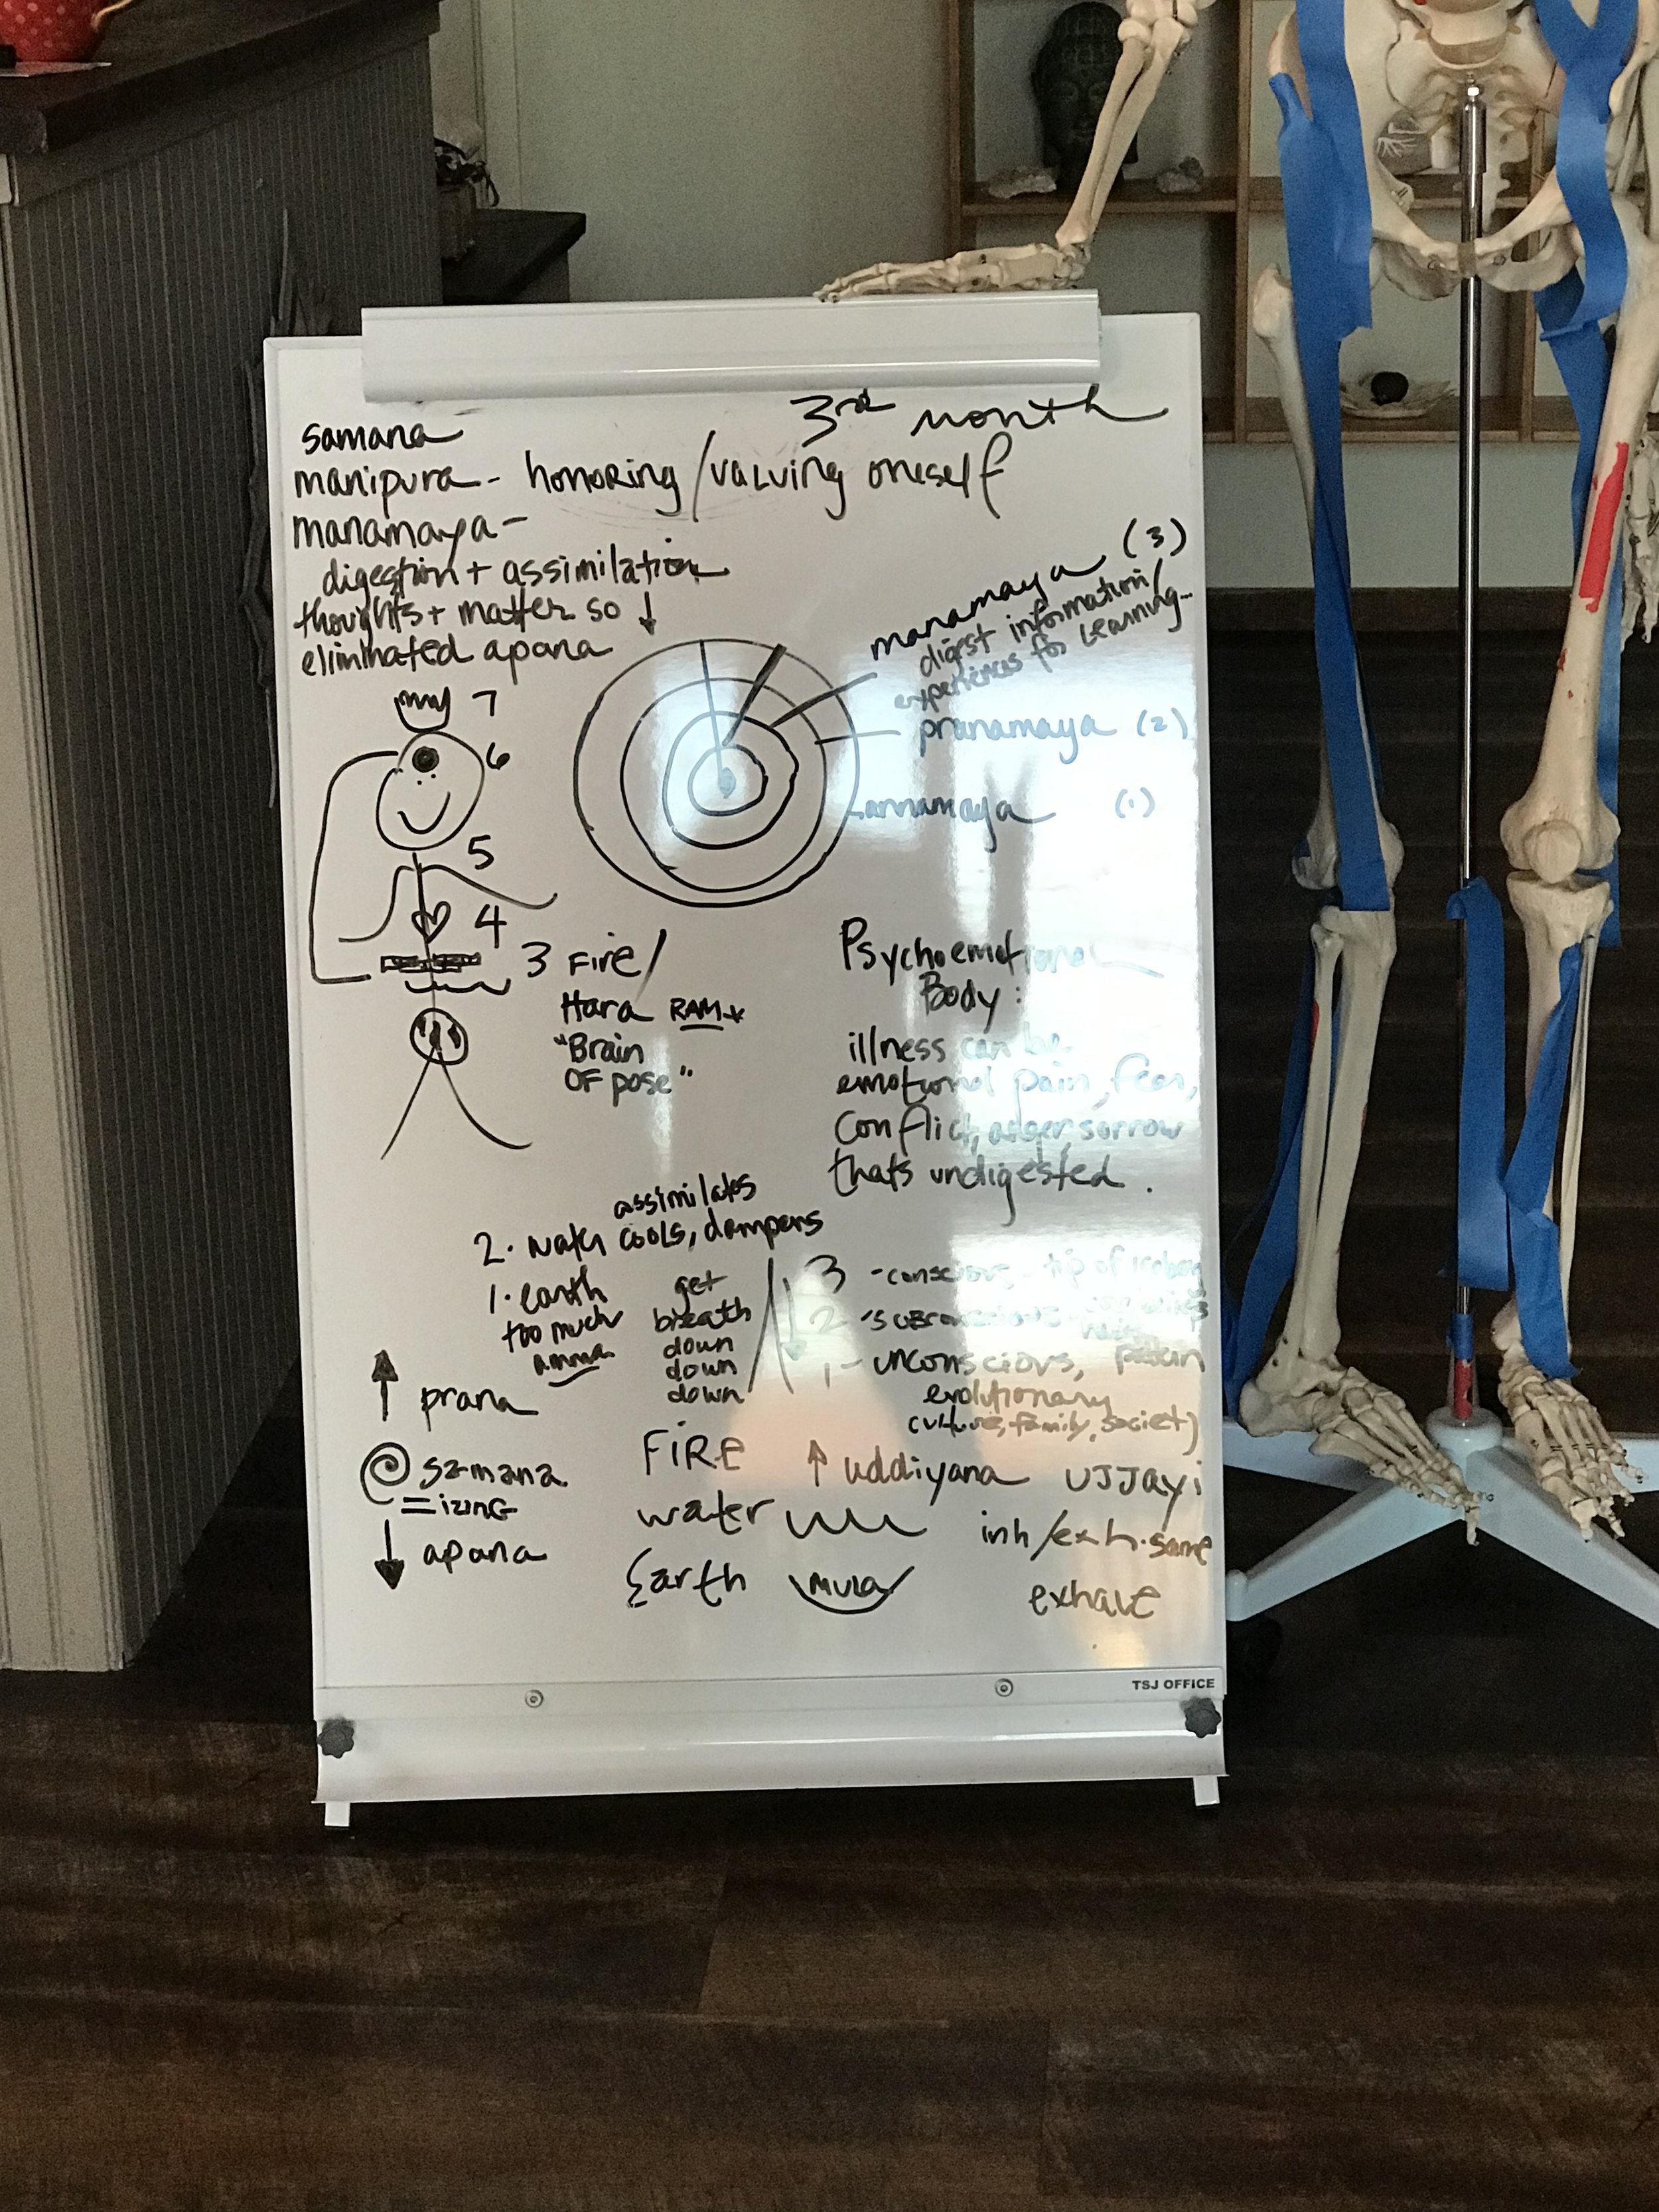 3rd month
samana
manipura - honoring/valuing oneself
manamaya -
digestion + assimilation
thoughts + matter so
eliminated apana
manamaya (3)
digest information/
experiences for learning
pranamaya (2)
annamaya (1)
7
6
5
4
3 Fire/
Hara RAM
"Brain
OF pose"
Psychoemotional
Body:
illness can be
emotional pain, fear,
conflict, anger, sorrow
thats undigested.
assimilates
2. water cools, dampers
1. earth
too much
amma
get
breath
down
down
down
3 - conscious - tip of iceberg
2 - subconscious
1 - unconscious,
evolutionary
culture, family, society)
prana
samana
= izing
apana
FIRE uddiyana UJJayi
water inh/exh. same
Earth mula exhale
TSJ OFFICE